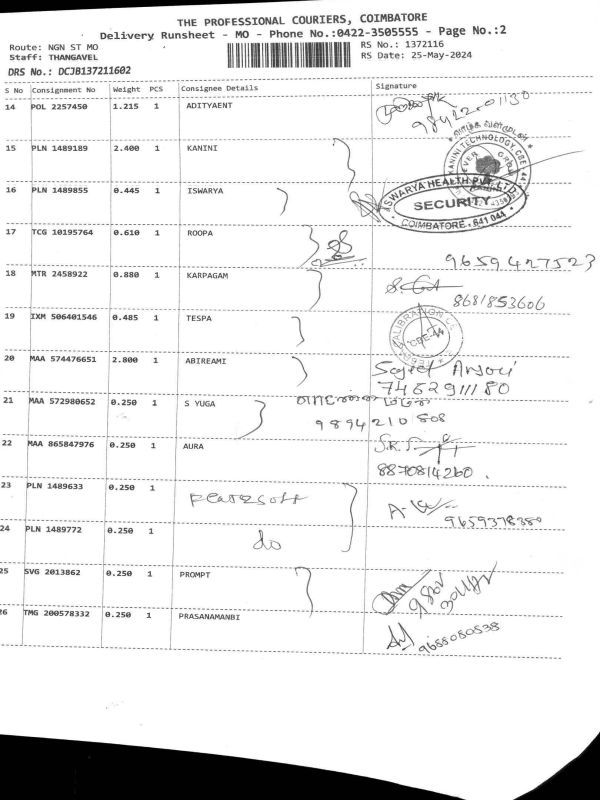 THE PROFESSIONAL COURIERS, COIMBATORE
Delivery Runsheet - MO - Phone No.:0422-3505555 - Page No.:2
Route: NGN ST MO
Staff: THANGAVEL
RS No.: 1372116
RS Date: 25-May-2024
DRS No.: DCJB137211602
S No Consignment No Weight PCS Consignee Details Signature
14 POL 2257450 1.215 1 ADITYAENT
98422 01130
15 PLN 1489189 2.400 1 KANINI
KANINI TECHNOLOGY, CBE
16 PLN 1489855 0.445 1 ISWARYA
ASWARYA HEALTH PVT. LTD
SECURITY
COIMBATORE - 641 044
17 TCG 10195764 0.610 1 ROOPA
9659427523
18 MTR 2458922 0.880 1 KARPAGAM
8681853606
19 IXM 506401546 0.485 1 TESPA
CBE-44
20 MAA 574476651 2.800 1 ABIREAMI
7452911180
21 MAA 572980652 0.250 1 S YUGA
9894210 808
22 MAA 865847976 0.250 1 AURA
8870814260.
23 PLN 1489633 0.250 1
9659378380
24 PLN 1489772 0.250 1 do
25 SVG 2013862 0.250 1 PROMPT
26 TMG 200578332 0.250 1 PRASANAMANBI
9688080538